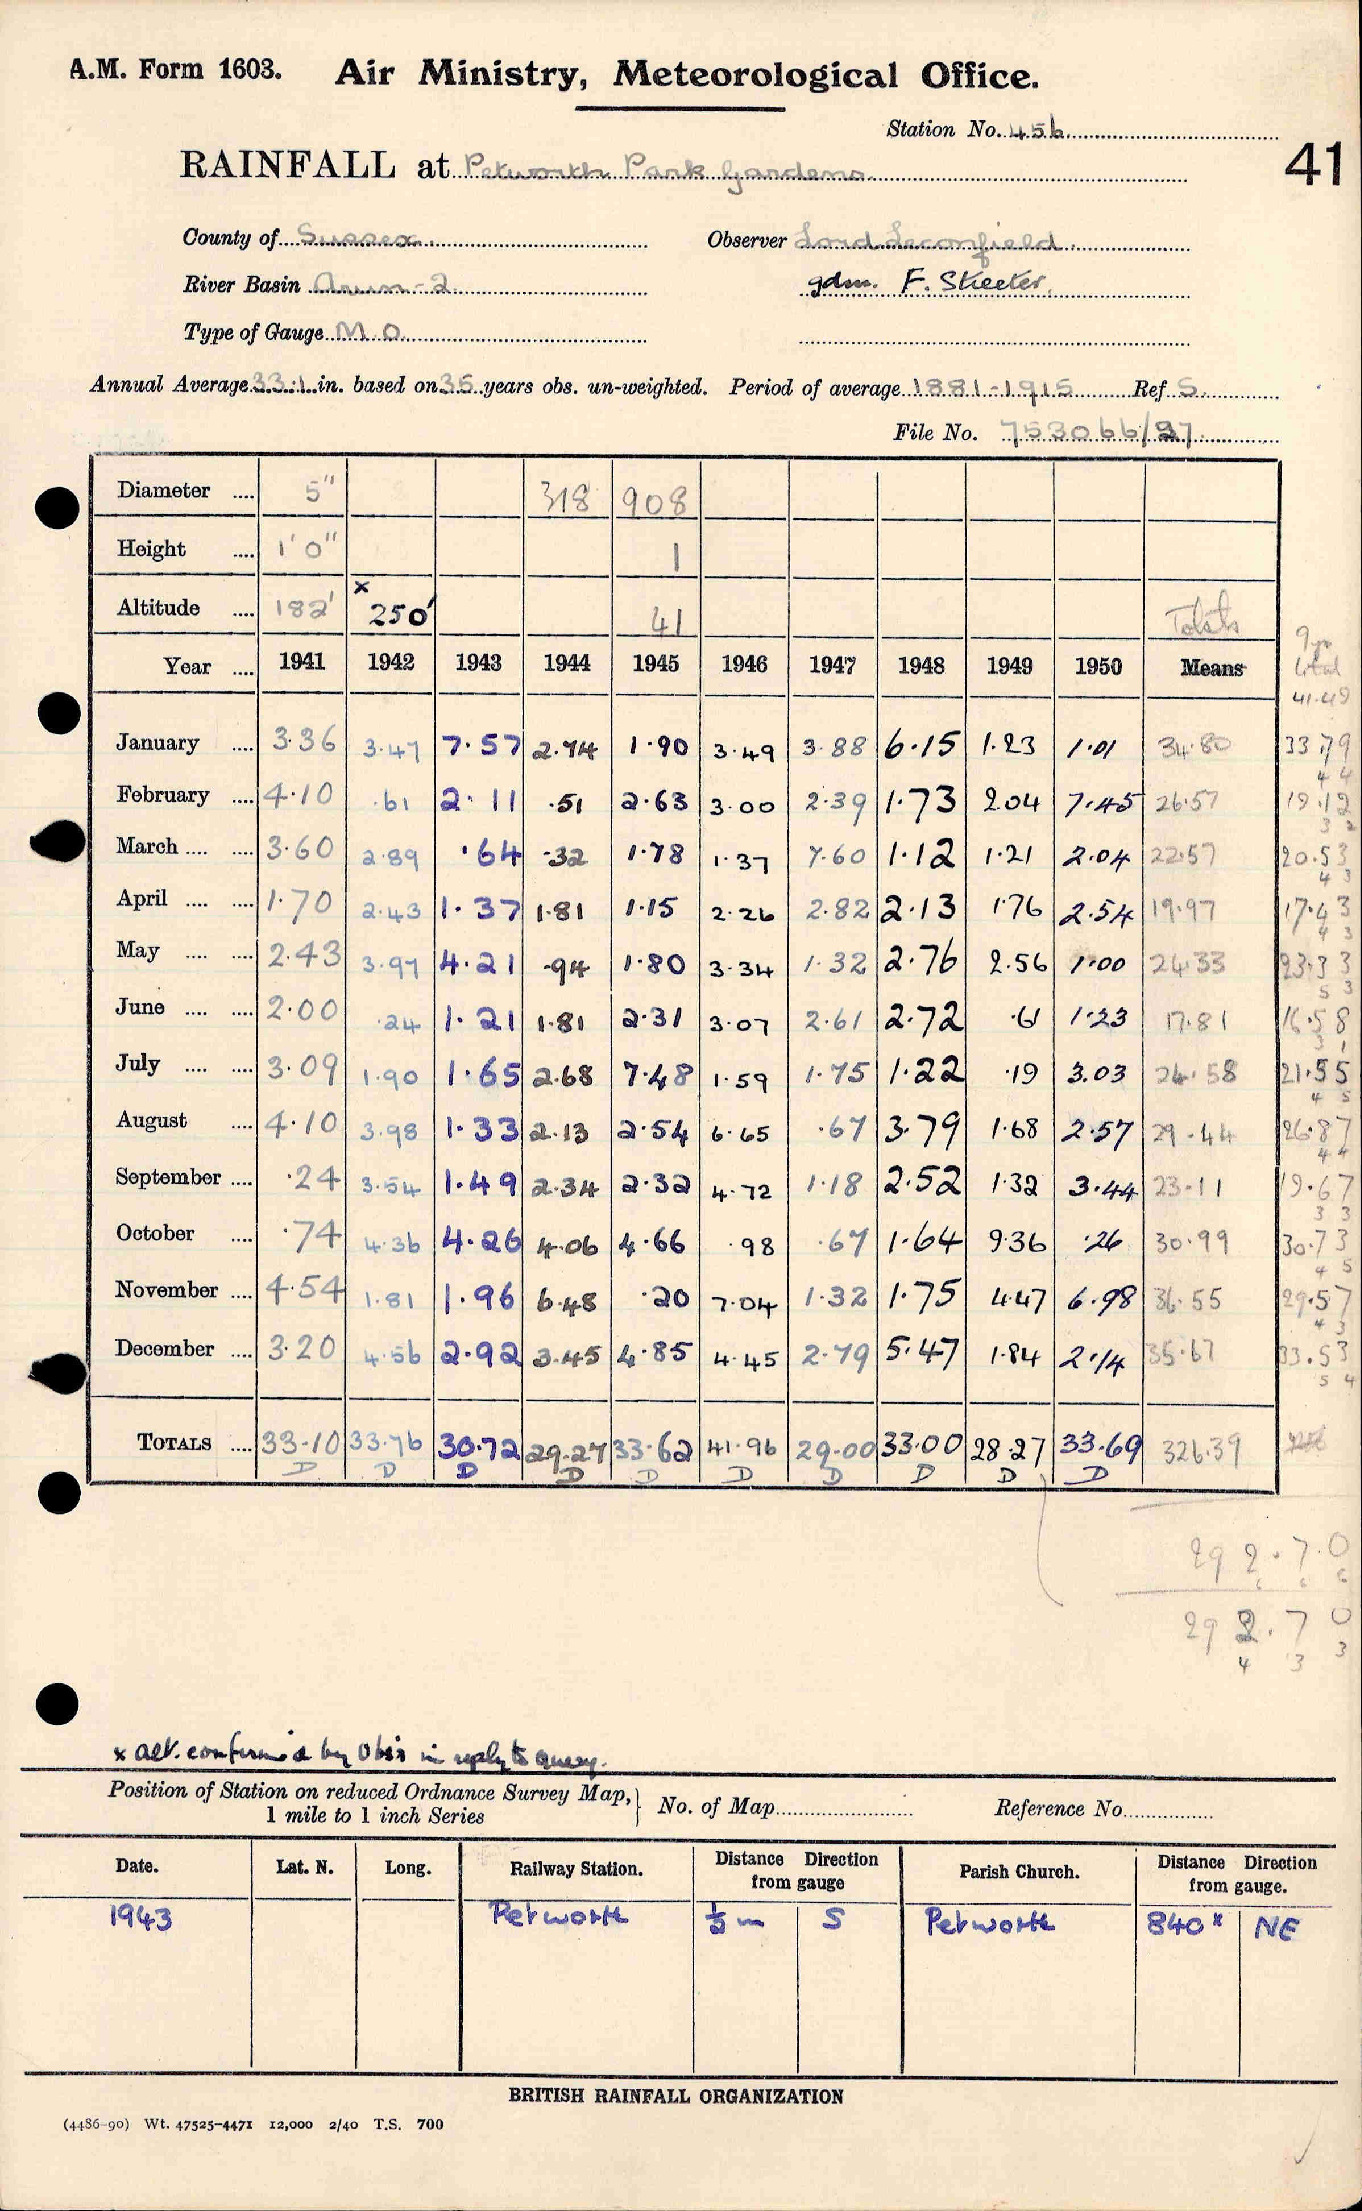 A.M. Form 1603. Air Ministry, Meteorological Office.
Station No. 456
41
RAINFALL at Petworth Park Gardens
County of Sussex Observer Lord Leconfield
River Basin Arun-2 gdm. F. Skeeter.
Type of Gauge M.O.
Annual Average 33.1 in. based on 35 years obs. un-weighted. Period of average 1881-1915 Ref S.
File No. 753066/37
Diameter .... 5" 318 908
Height .... 1'0" 1
Altitude .... 182' x 250' 41 Totals
Year .... 1941 1942 1943 1944 1945 1946 1947 1948 1949 1950 Means 9 yr total
41.49
January .... 3.36 3.47 7.57 2.74 1.90 3.49 3.88 6.15 1.23 1.01 34.80 33.79
4 4
February .... 4.10 .61 2.11 .51 2.63 3.00 2.39 1.73 2.04 7.45 26.57 19.12
3 2
March .... .... 3.60 2.89 .64 .32 1.78 1.37 7.60 1.12 1.21 2.04 22.57 20.53
4 3
April .... .... 1.70 2.43 1.37 1.81 1.15 2.26 2.82 2.13 1.76 2.54 19.97 17.43
4 3
May .... .... 2.43 3.97 4.21 .94 1.80 3.34 1.32 2.76 2.56 1.00 24.33 23.33
5 3
June .... .... 2.00 .24 1.21 1.81 2.31 3.07 2.61 2.72 .61 1.23 17.81 16.58
3 1
July .... .... 3.09 1.90 1.65 2.68 7.48 1.59 1.75 1.22 .19 3.03 24.58 21.55
4 5
August .... 4.10 3.98 1.33 2.13 2.54 6.65 .67 3.79 1.68 2.57 29.44 26.87
4 4
September .... .24 3.54 1.49 2.34 2.32 4.72 1.18 2.52 1.32 3.44 23.11 19.67
3 3
October .... .74 4.36 4.26 4.06 4.66 .98 .67 1.64 9.36 .26 30.99 30.73
4 5
November .... 4.54 1.81 1.96 6.48 .20 7.04 1.32 1.75 4.47 6.98 36.55 29.57
4 3
December .... 3.20 4.56 2.92 3.45 4.85 4.45 2.79 5.47 1.84 2.14 35.67 33.53
5 4
TOTALS .... 33.10 33.76 30.72 29.27 33.62 41.96 29.00 33.00 28.27 33.69 326.39
D D D D D D D D D D
292.70
6 6 6
292.70
4 3 3
x alt. confirmed by Obsr in reply to query.
Position of Station on reduced Ordnance Survey Map, 1 mile to 1 inch Series } No. of Map Reference No.
Date. Lat. N. Long. Railway Station. Distance Direction from gauge Parish Church. Distance Direction from gauge.
1943 Petworth ½ m S Petworth 840x NE
BRITISH RAINFALL ORGANIZATION
(4486-90) Wt. 47525-4471 12,000 2/40 T.S. 700